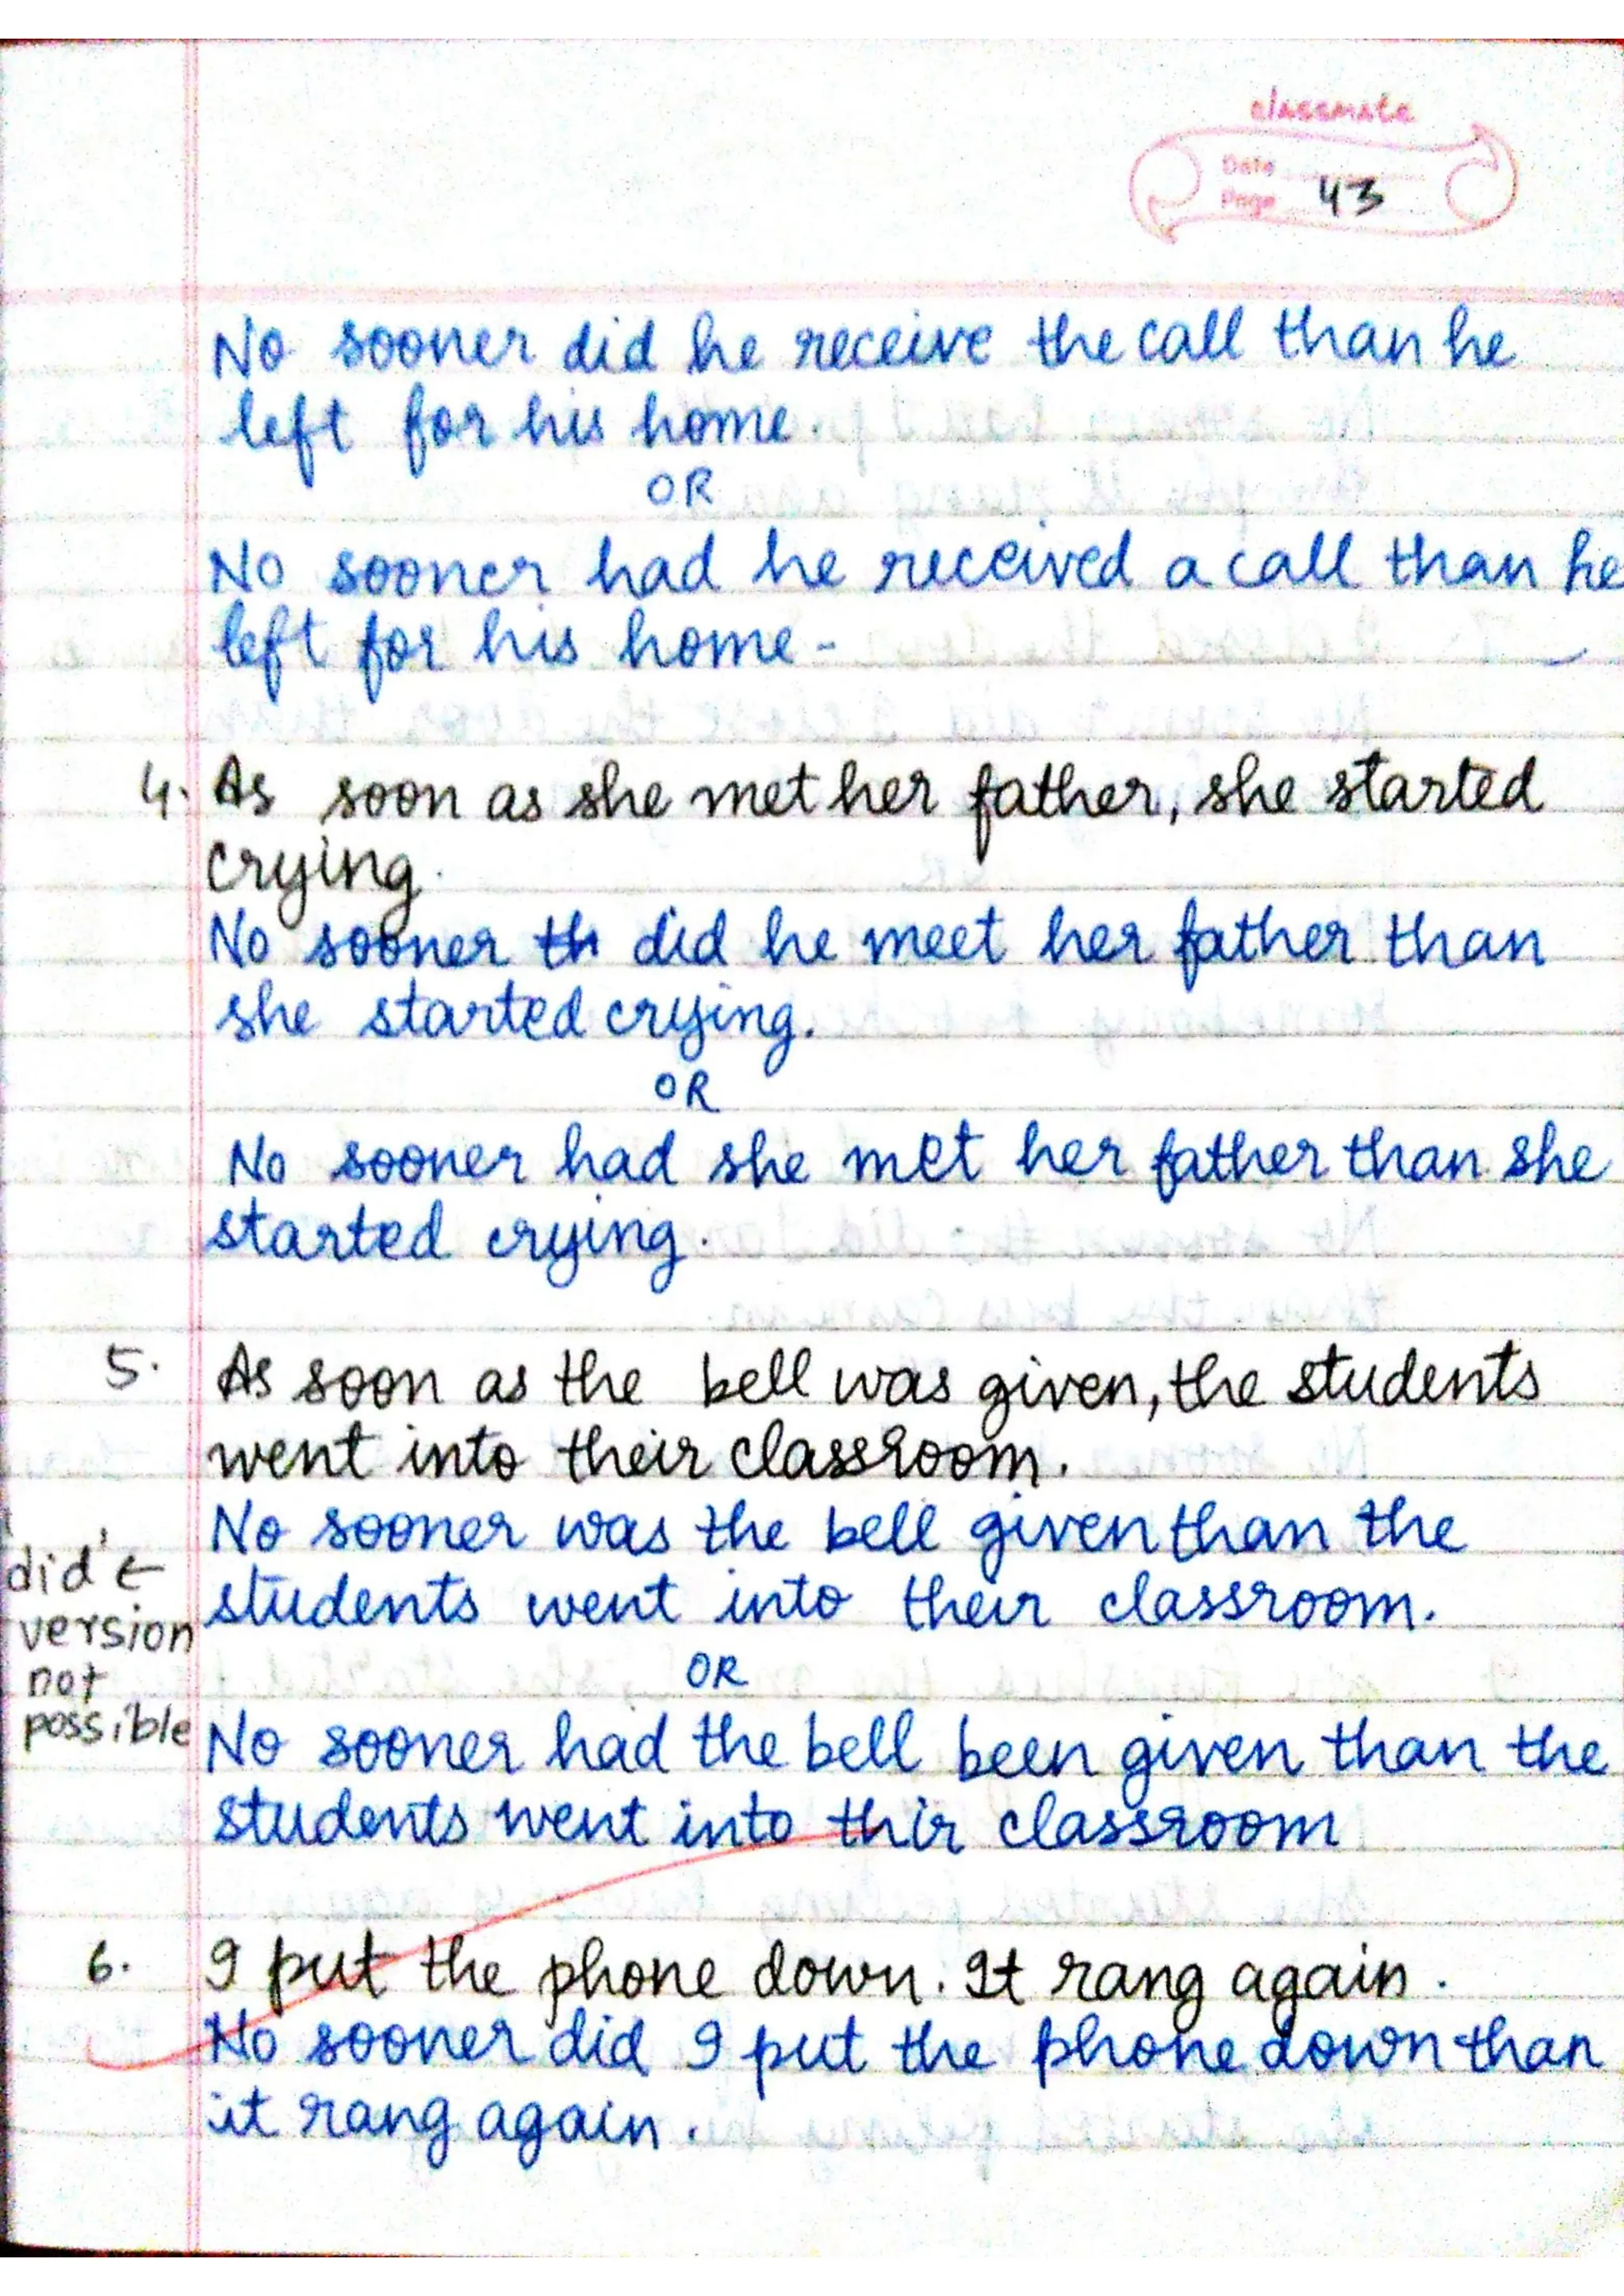 classmate
Date
Page 43
No sooner did he receive the call than he
left for his home.
OR
No sooner had he received a call than he
left for his home -
4. As soon as she met her father, she started
crying.
No sooner th did he meet her father than
she started crying.
OR
No sooner had she met her father than she
started crying.
5. As soon as the bell was given, the students
went into their classroom.
No sooner was the bell given than the
students went into their classroom.
'did' ←
version
not
possible
OR
No sooner had the bell been given than the
students went into thir classroom
6. I put the phone down. It rang again.
No sooner did I put the phone down than
it rang again.